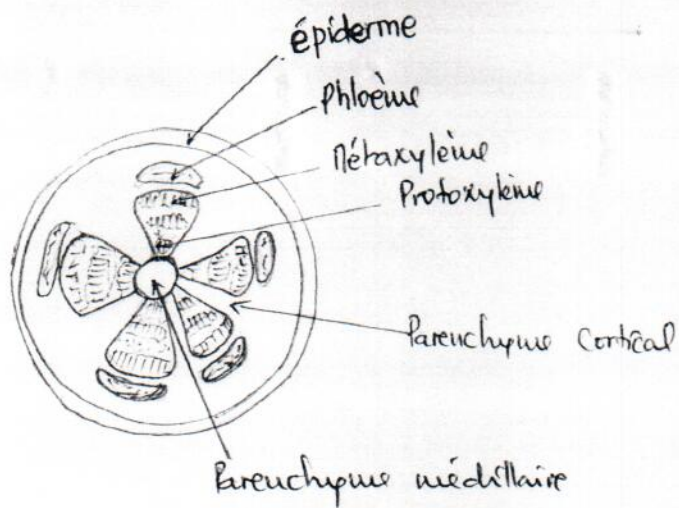 épiderme
Phloème
Métaxylème
Protoxylème
Parenchyme Cortical
Parenchyme médullaire